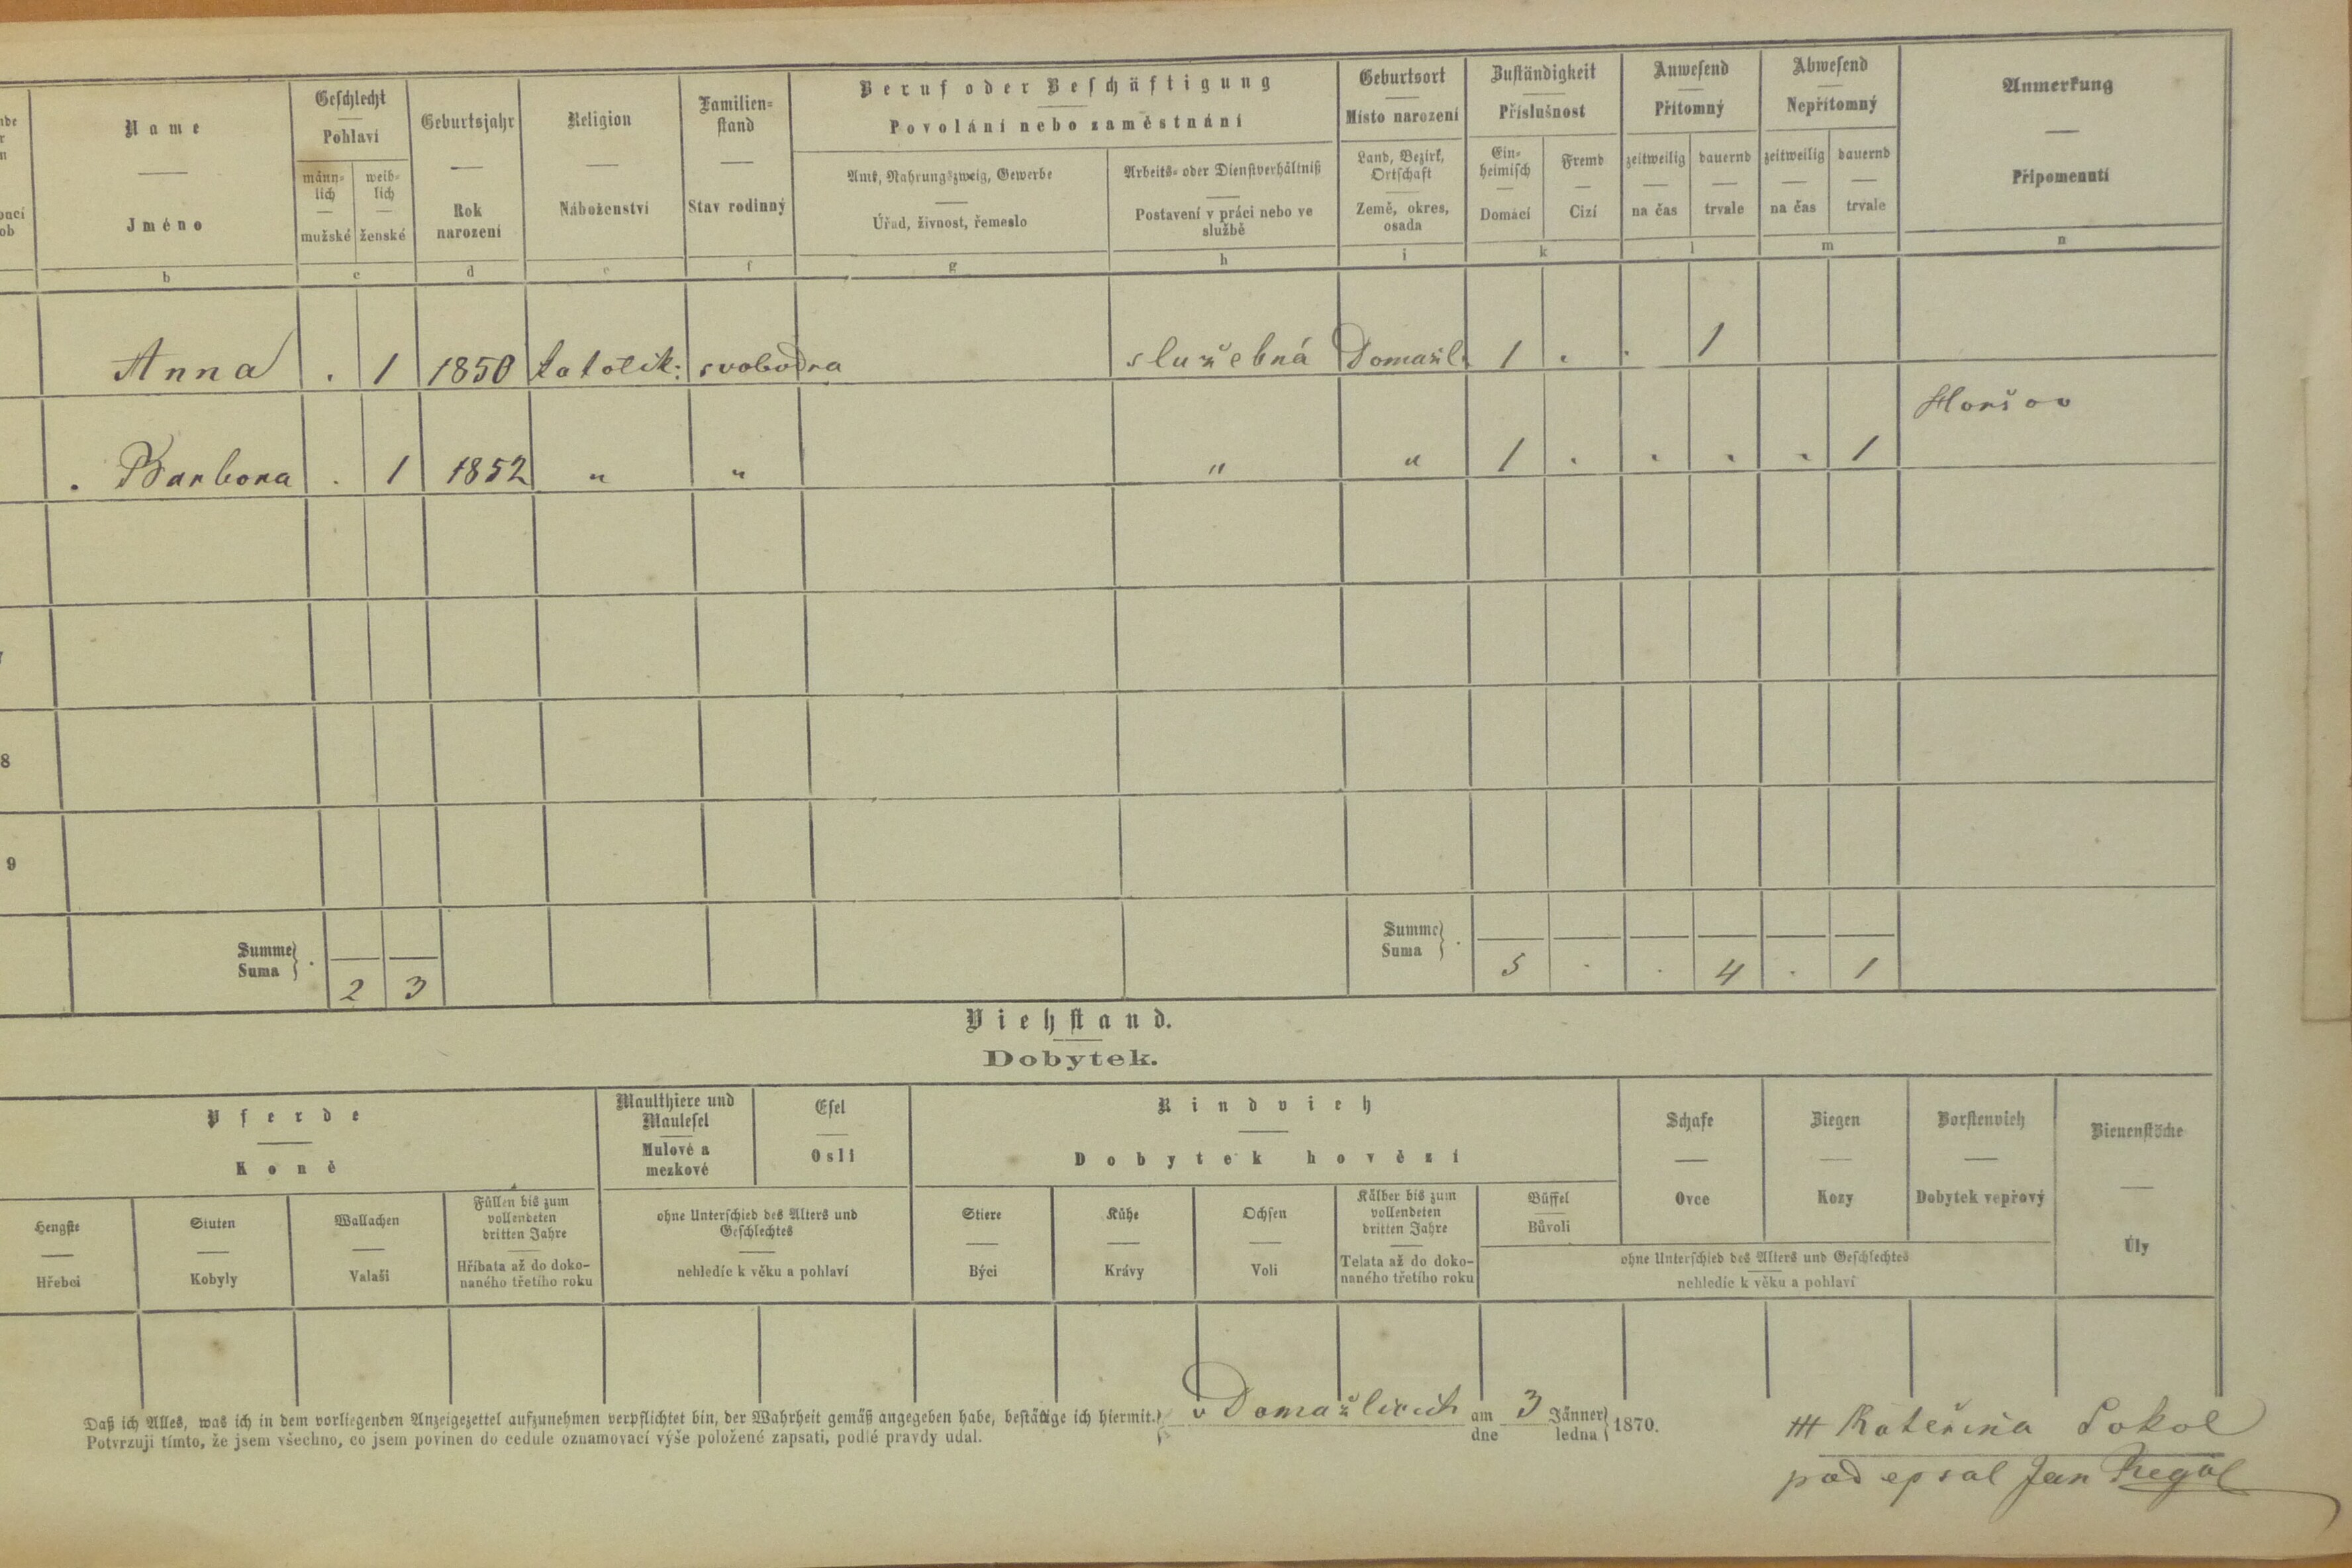 Name Geschlecht Geburtsjahr Religion Familien=stand Beruf oder Beschäftigung Geburtsort Zuständigkeit Anwesend Abwesend Anmerkung
Jméno Pohlaví Rok narození Náboženství Stav rodinný Povolání nebo zaměstnání Místo narození Příslušnost Přítomný Nepřítomný Připomenutí
männ=lich weib=lich Amt, Nahrungszweig, Gewerbe Arbeits= oder Dienstverhältniß Land, Bezirk, Ortschaft Ein=heimisch Fremd zeitweilig dauernd zeitweilig dauernd
mužské ženské Úřad, živnost, řemeslo Postavení v práci nebo ve službě Země, okres, osada Domácí Cizí na čas trvale na čas trvale
b c d e f g h i k l m n
Anna . 1 1850 katolik: svobodna služebná Domažl. 1 . . 1
Horšov
. Barbora . 1 1852 " " " " 1 . . . . 1
8
9
Summe Suma } . 2 3 Summe Suma } . 5 . . 4 . 1
Viehstand.
Dobytek.
Pferde Maulthiere und Maulesel Esel Rindvieh Schafe Ziegen Borstenvieh Bienenstöcke
Koně Mulové a mezkové Osli Dobytek hovězí Ovce Kozy Dobytek vepřový Úly
Hengste Stuten Wallachen Füllen bis zum vollendeten dritten Jahre ohne Unterschied des Alters und Geschlechtes Stiere Kühe Ochsen Kälber bis zum vollendeten dritten Jahre Büffel
Hřebci Kobyly Valaši Hříbata až do doko-naného třetího roku nehledíc k věku a pohlaví Býci Krávy Voli Telata až do doko-naného třetího roku Bůvoli
ohne Unterschied des Alters und Geschlechtes
nehledíc k věku a pohlaví
Daß ich Alles, was ich in dem vorliegenden Anzeigezettel aufzunehmen verpflichtet bin, der Wahrheit gemäß angegeben habe, bestätige ich hiermit. v Domažlicích am 3 Jänner 1870.
Potvrzuji tímto, že jsem všechno, co jsem povinen do cedule oznamovací výše položené zapsati, podlé pravdy udal. dne ledna
+++ Kateřina Sokol
podepsal Jan